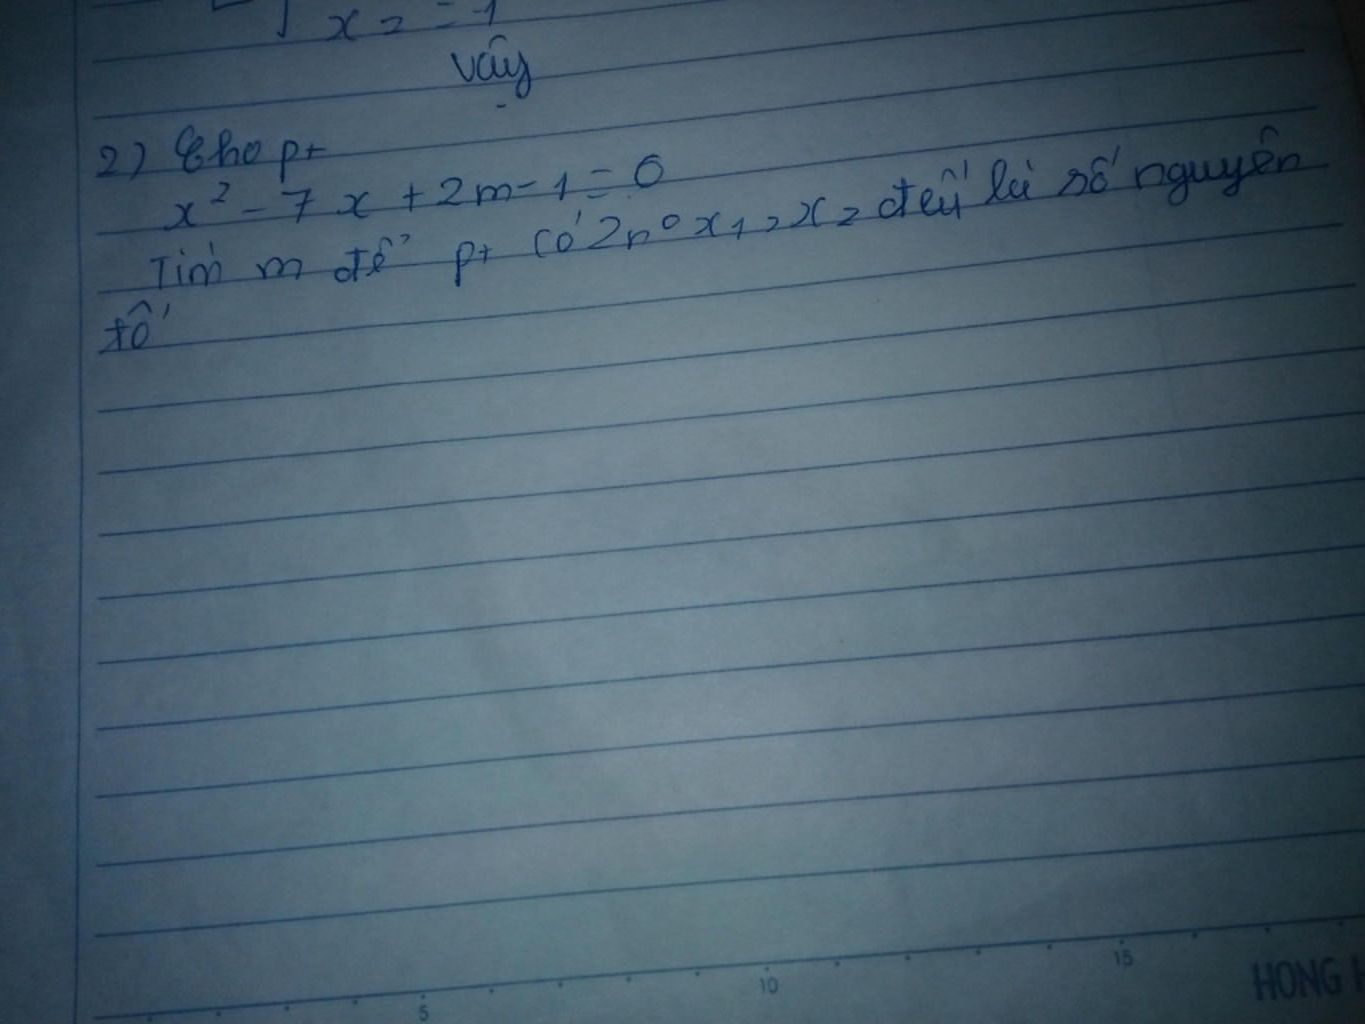 x₂ = -1
vậy
2) Cho pt
x² - 7x + 2m - 1 = 0
Tìm m để pt có 2n⁰ x₁, x₂ đều là số nguyên
tố
5 10 15
HONG